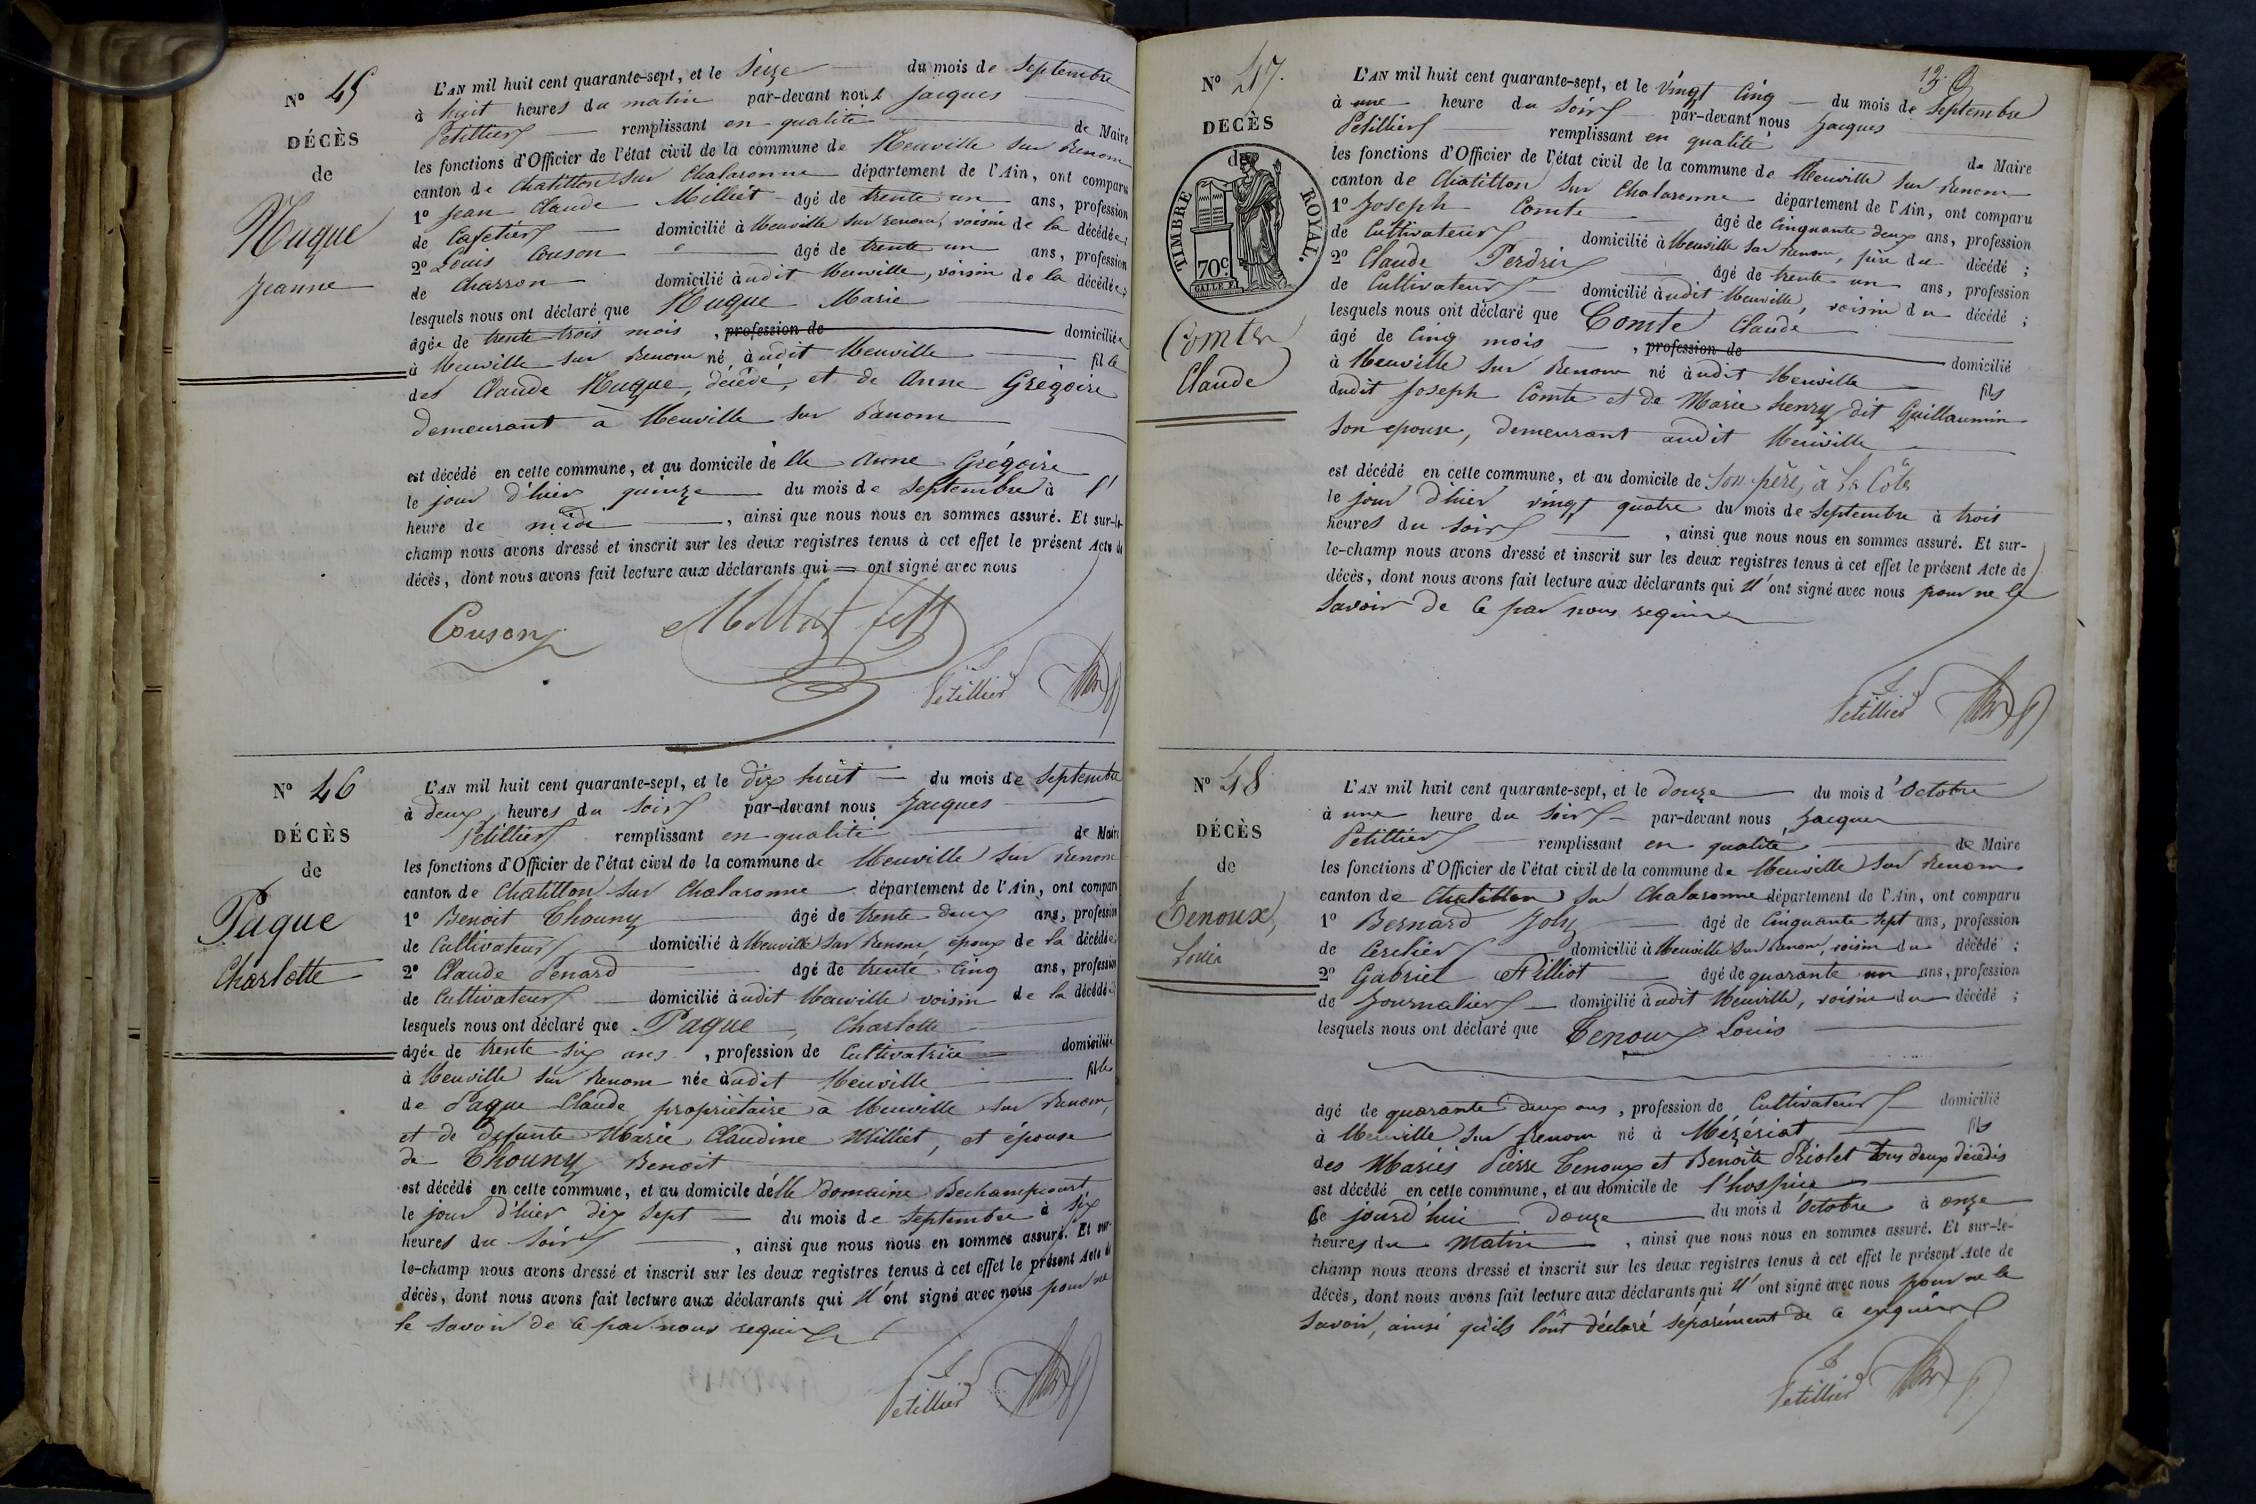 Nº 45
DÉCÈS
de
Huque
Jeanne
L'AN mil huit cent quarante-sept, et le Seize du mois de Septembre
à huit heures du matin par-devant nous Jacques
Petillier remplissant en qualité de Maire
les fonctions d'Officier de l'état civil de la commune de Neuville sur Renom
canton de Chatillon sur Chalaronne département de l'Ain, ont comparu
1º Jean Claude Milliet âgé de trente un ans, profession
de Cafetier domicilié à Neuville sur Renom, voisin de la décédée;
2º Louis Couson âgé de trente un ans, profession
de Charron domicilié audit Neuville, voisin de la décédée;
lesquels nous ont déclaré que Huque Marie
âgée de trente trois mois, profession de domiciliée
à Neuville sur Renom né audit Neuville fille
des Claude Huque, décédé, et de Anne Grégoire
demeurant à Neuville sur Renom
est décédé en cette commune, et au domicile de Anne Grégoire
le jour d'hier quinze du mois de Septembre à l'
heure de midi, ainsi que nous nous en sommes assuré. Et sur-le-
champ nous avons dressé et inscrit sur les deux registres tenus à cet effet le présent Acte de
décès, dont nous avons fait lecture aux déclarants qui ont signé avec nous
Couson
Petillier
Nº 46
DÉCÈS
de
Paque
Charlotte
L'AN mil huit cent quarante-sept, et le dix huit du mois de Septembre
à deux heures du Soir par-devant nous Jacques
Petillier remplissant en qualité de Maire
les fonctions d'Officier de l'état civil de la commune de Neuville sur Renom
canton de Chatillon sur Chalaronne département de l'Ain, ont comparu
1º Benoit Thouny âgé de trente deux ans, profession
de Cultivateur domicilié à Neuville sur Renom, époux de la décédée;
2º Claude Penard âgé de trente cinq ans, profession
de Cultivateur domicilié audit Neuville voisin de la décédée;
lesquels nous ont déclaré que Paque, Charlotte
âgée de trente six ans, profession de Cultivatrice domiciliée
à Neuville sur Renom née audit Neuville fille
de Paque Claude propriétaire à Neuville sur Renom,
et de défunte Marie Claudine Milliet, et épouse
de Thouny Benoit
est décédé en cette commune, et au domicile d'elle domaine Bechampcourt
le jour d'hier dix sept du mois de Septembre à six
heures du Soir, ainsi que nous nous en sommes assuré. Et sur-
le-champ nous avons dressé et inscrit sur les deux registres tenus à cet effet le présent Acte de
décès, dont nous avons fait lecture aux déclarants qui n'ont signé avec nous pour ne
le savoir de ce par nous requis
Petillier
13.
Nº 47.
DÉCÈS
de
TIMBRE ROYAL.
70c.
GALLE F.
Comte
Claude
L'AN mil huit cent quarante-sept, et le Vingt Cinq du mois de Septembre
à une heure du Soir par-devant nous Jacques
Petillier remplissant en qualité de Maire
les fonctions d'Officier de l'état civil de la commune de Neuville sur Renom
canton de Chatillon sur Chalaronne département de l'Ain, ont comparu
1º Joseph Comte âgé de cinquante deux ans, profession
de Cultivateur domicilié à Neuville sur Renom, père du décédé;
2º Claude Perdrix âgé de trente un ans, profession
de Cultivateur domicilié audit Neuville, voisin du décédé;
lesquels nous ont déclaré que Comte Claude
âgé de Cinq mois, profession de domicilié
à Neuville sur Renom né audit Neuville fils
dudit Joseph Comte et de Marie henry dit Guillaumin
son epouse, demeurant audit Neuville
est décédé en cette commune, et au domicile de Son père, à La Côte
le jour d'hier vingt quatre du mois de Septembre à trois
heures du soir, ainsi que nous nous en sommes assuré. Et sur-
le-champ nous avons dressé et inscrit sur les deux registres tenus à cet effet le présent Acte de
décès, dont nous avons fait lecture aux déclarants qui n'ont signé avec nous pour ne le
Savoir de ce par nous requis
Petillier
Nº 48
DÉCÈS
de
Tenoux,
Louis
L'AN mil huit cent quarante-sept, et le douze du mois d'Octobre
à une heure du Soir par-devant nous Jacques
Petillier remplissant en qualité de Maire
les fonctions d'Officier de l'état civil de la commune de Neuville sur Renom
canton de Chatillon sur Chalaronne département de l'Ain, ont comparu
1º Bernard Joly âgé de Cinquante sept ans, profession
de domicilié à Neuville sur Renom, voisin du décédé;
2º Gabriel âgé de quarante un ans, profession
de Journalier domicilié audit Neuville, voisin du décédé;
lesquels nous ont déclaré que Tenoux Louis
âgé de quarante deux ans, profession de Cultivateur domicilié
à Neuville sur Renom né à Mézériat fils
des Mariés Pierre Tenoux et Benoite Priolet tous deux décédés
est décédé en cette commune, et au domicile de l'hospice
Ce jourd'hui douze du mois d'Octobre à onze
heures du Matin, ainsi que nous nous en sommes assuré. Et sur-le-
champ nous avons dressé et inscrit sur les deux registres tenus à cet effet le présent Acte de
décès, dont nous avons fait lecture aux déclarants qui n'ont signé avec nous pour ne le
savoir, ainsi qu'ils l'ont déclaré séparément de ce enquis
Petillier